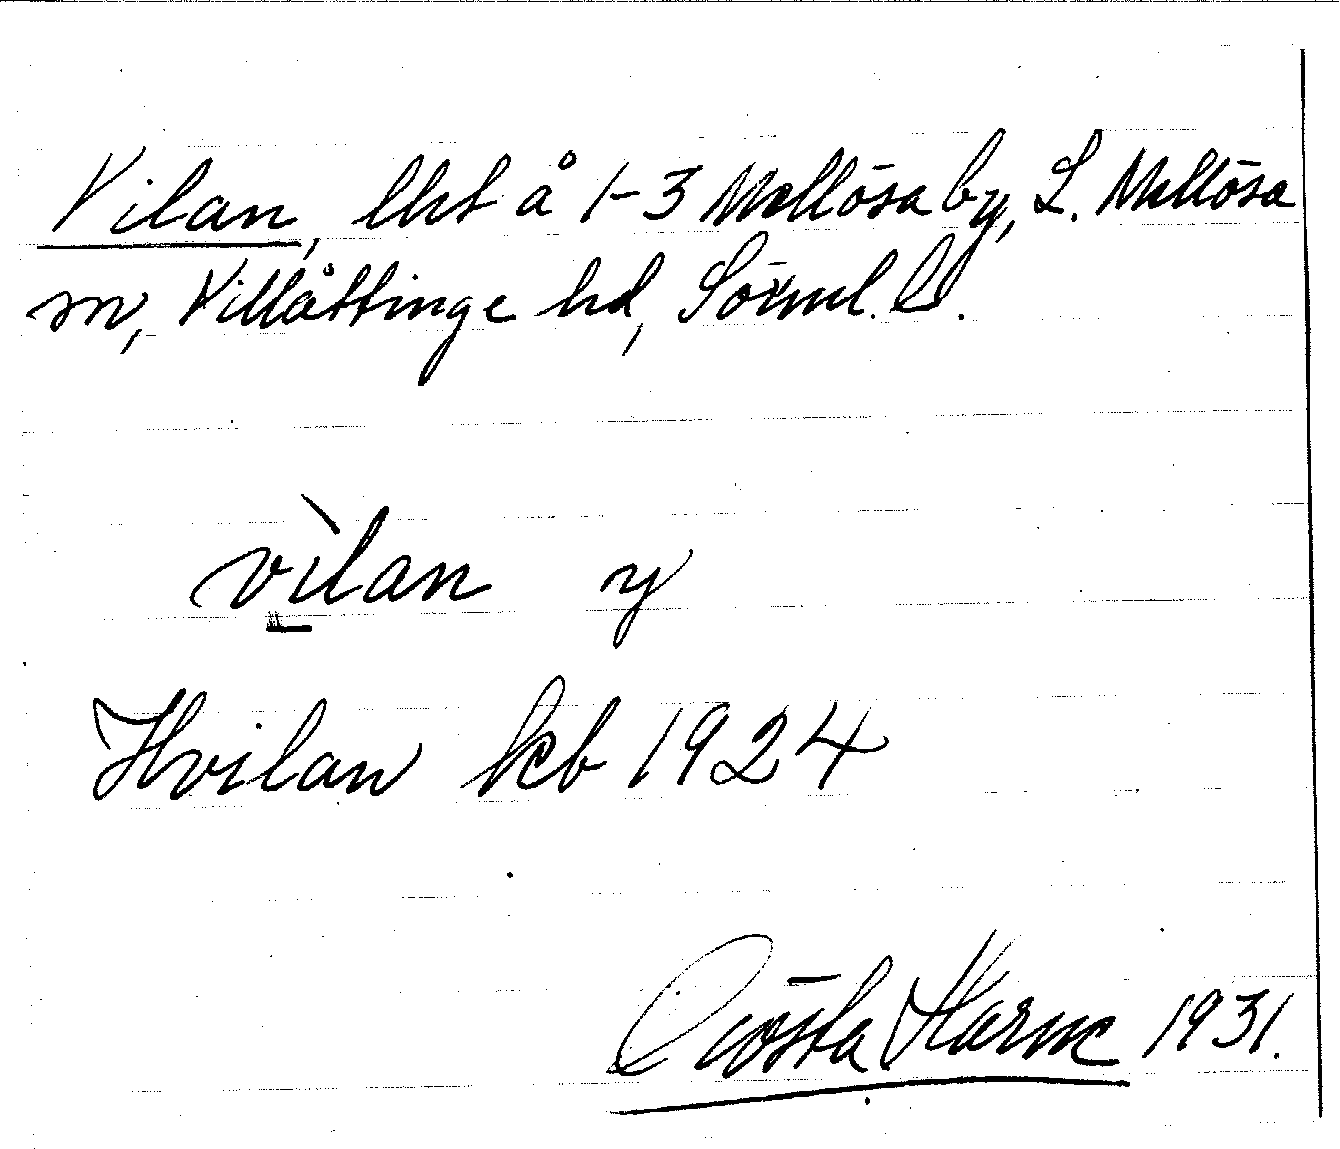 Vilan, lht å 1-3 Mellösa by, L. Mellösa
sn, Villåttinge hd, Sörml. l.
vìlan y
Hvilan kb 1924
Gösta Harne 1931.